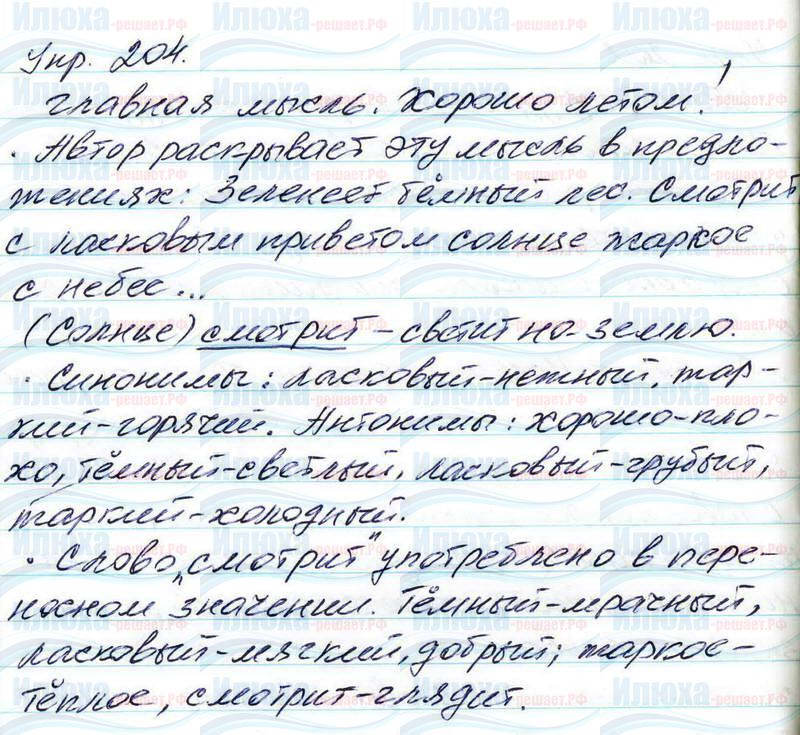 Упр. 204.
Главная мысль. Хорошо летом!
· Автор раскрывает эту мысль в предло-
жениях: Зеленеет тёмный лес. Смотрит
с ласковым приветом солнце жаркое
с небес...
(Солнце) смотрит – светит на землю.
· Синонимы: ласковый-нежный, жар-
кий-горячий. Антонимы: хорошо-пло-
хо, тёмный-светлый, ласковый-грубый,
жаркий-холодный.
· Слово „смотрит" употреблено в пере-
носном значении. Тёмный-мрачный,
ласковый-мягкий, добрый; жаркое-
тёплое, смотрит-глядит.